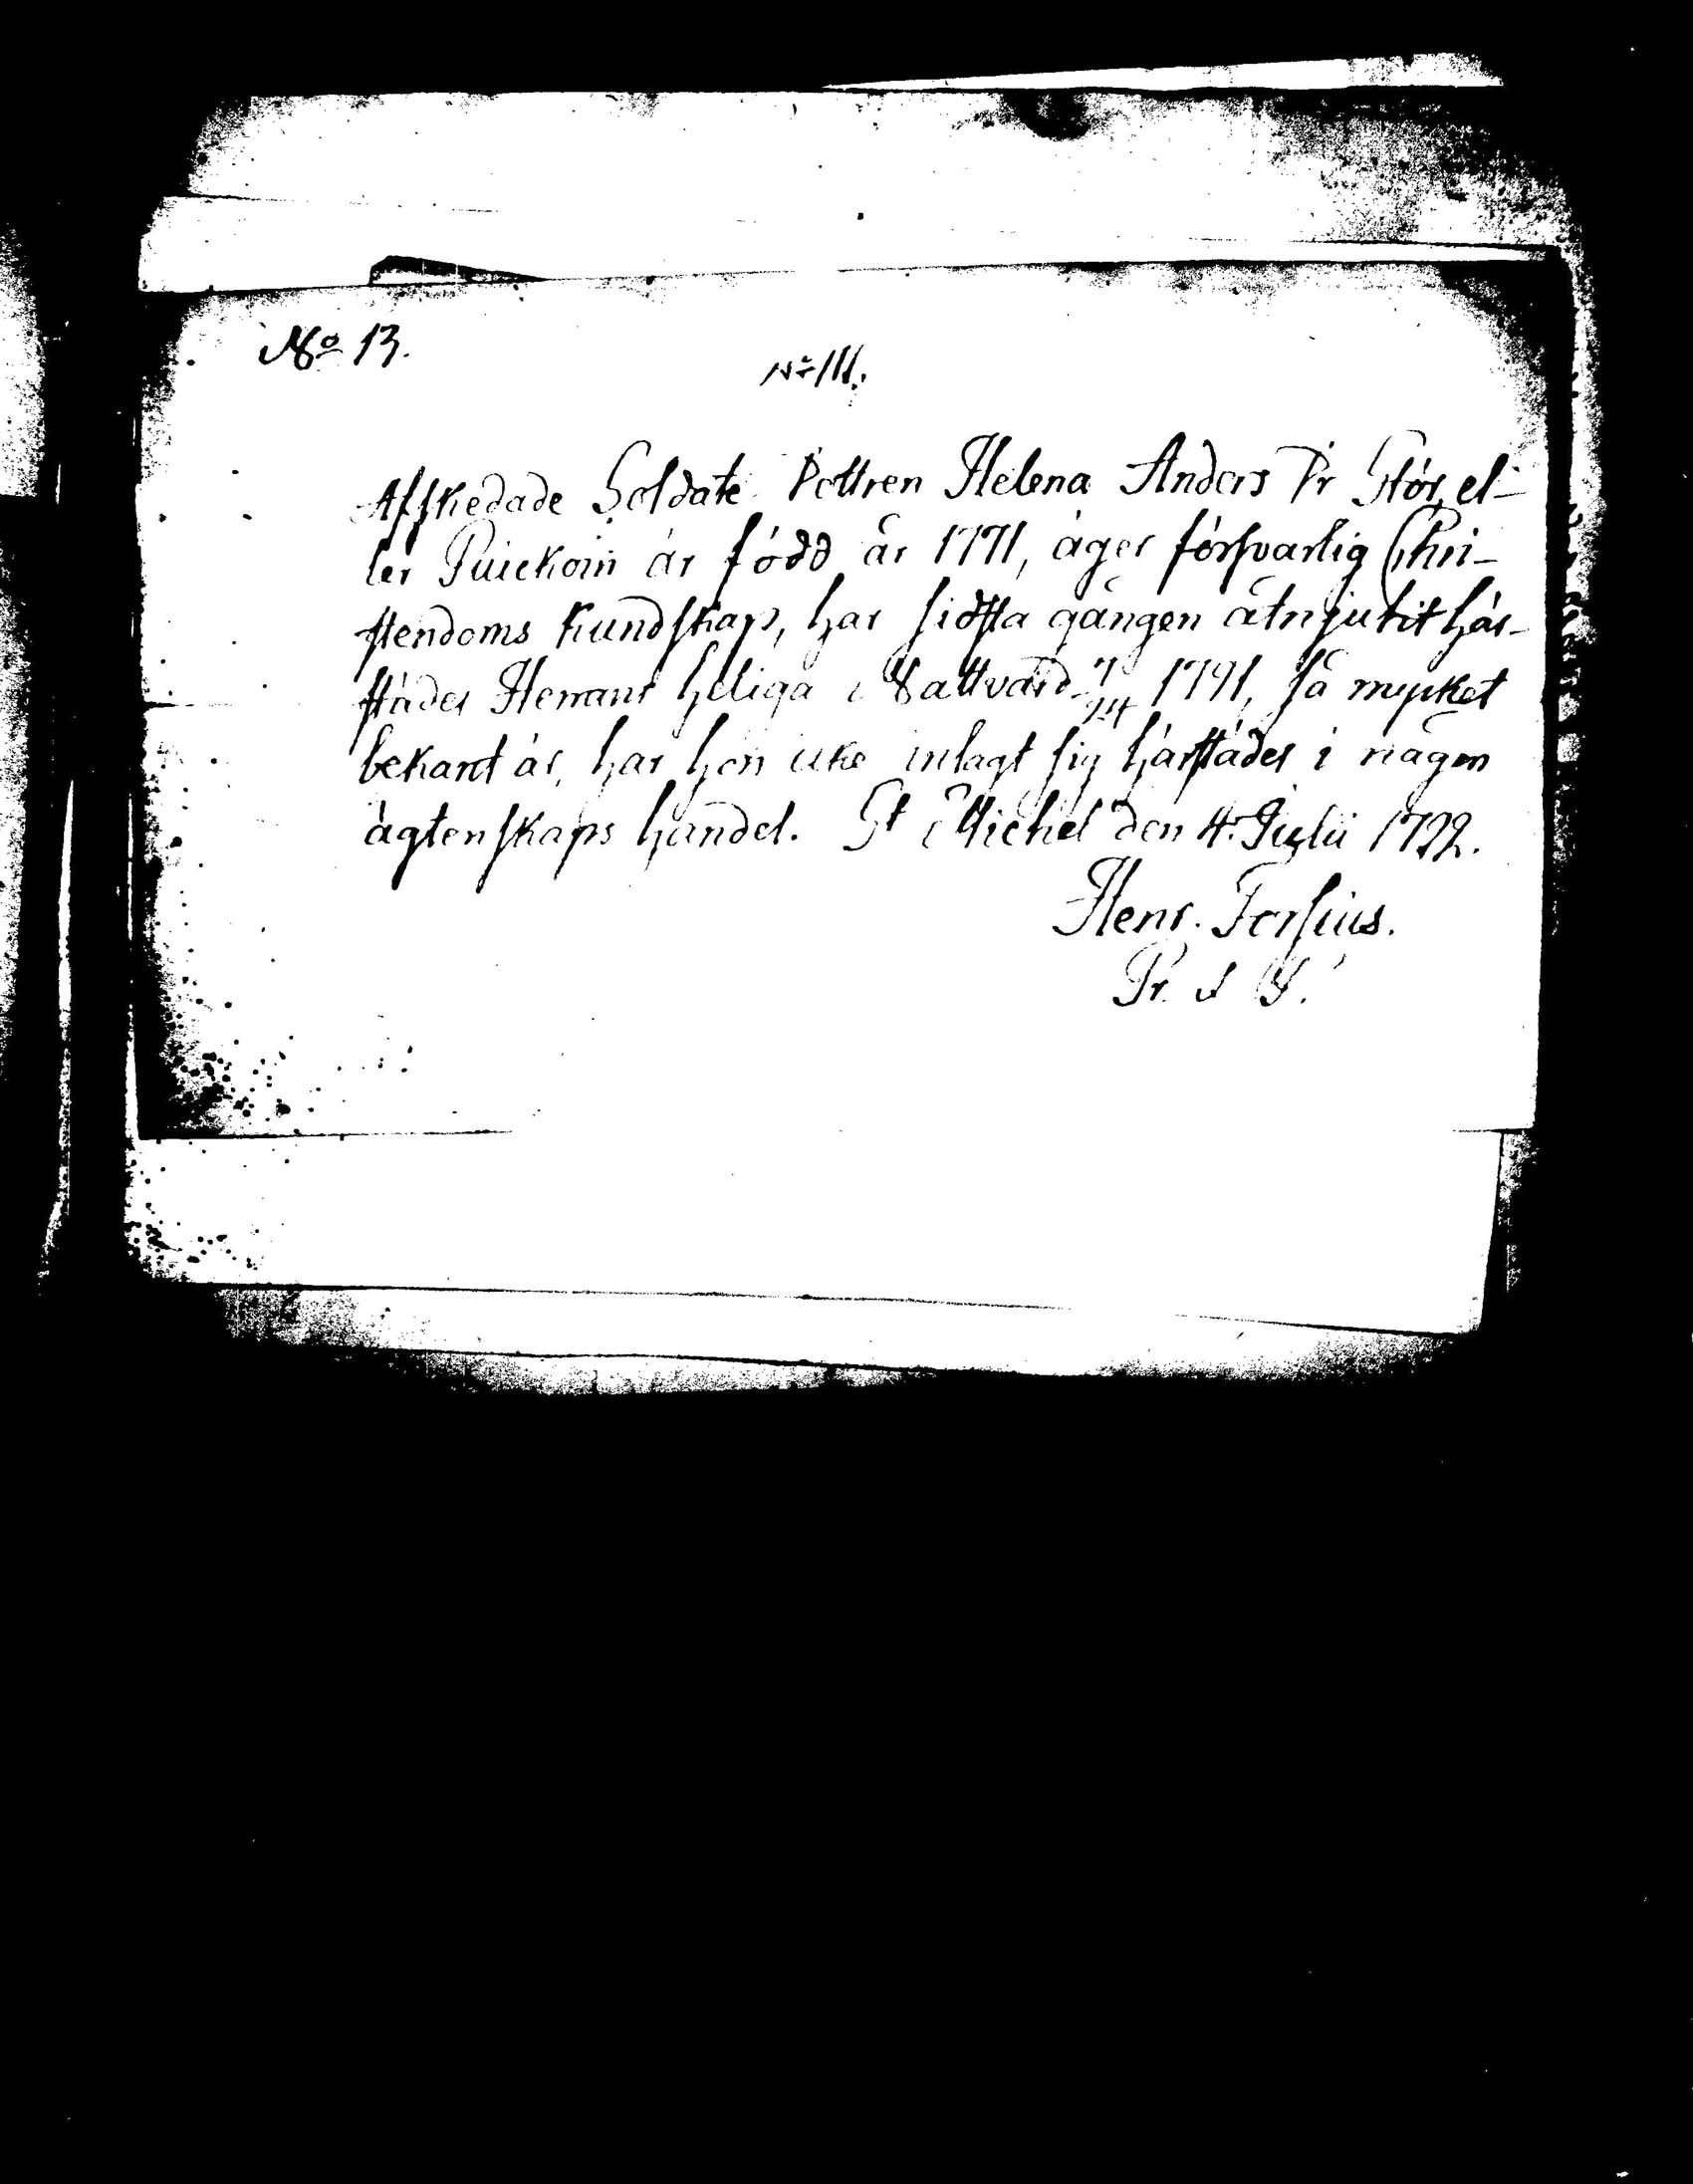 No 13.
No III.
Afskedade Soldate Dottren Helena Anders Dr Stör, el-
ler Puickoin är född år 1771, äger försvarlig Chri-
stendoms Kundskap, har sidsta gången åtnjutit här-
städes Herrans heliga Nattvard 7/24 1791, så mycket
bekant är, har hon icke inlagt sig härstädes i någon
ägtenskaps handel. St Michel den 4 Julii 1792.
Henr. Forsius.
Pr. S